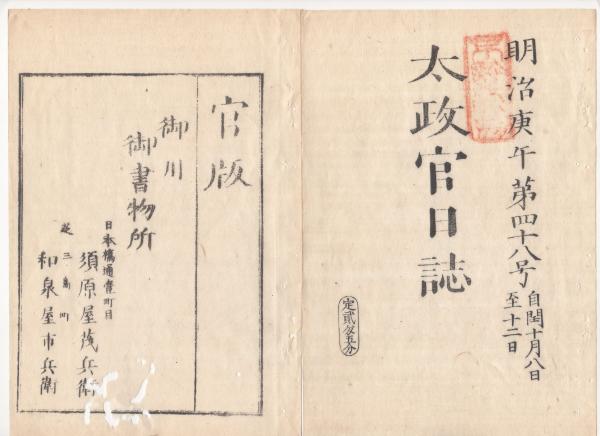 明治庚午第四十八号
自閏十月八日
至十二日
太政官日誌
官版
御用
御書物所
日本橋通壹町目
須原屋茂兵衛
芝三島町
和泉屋市兵衛